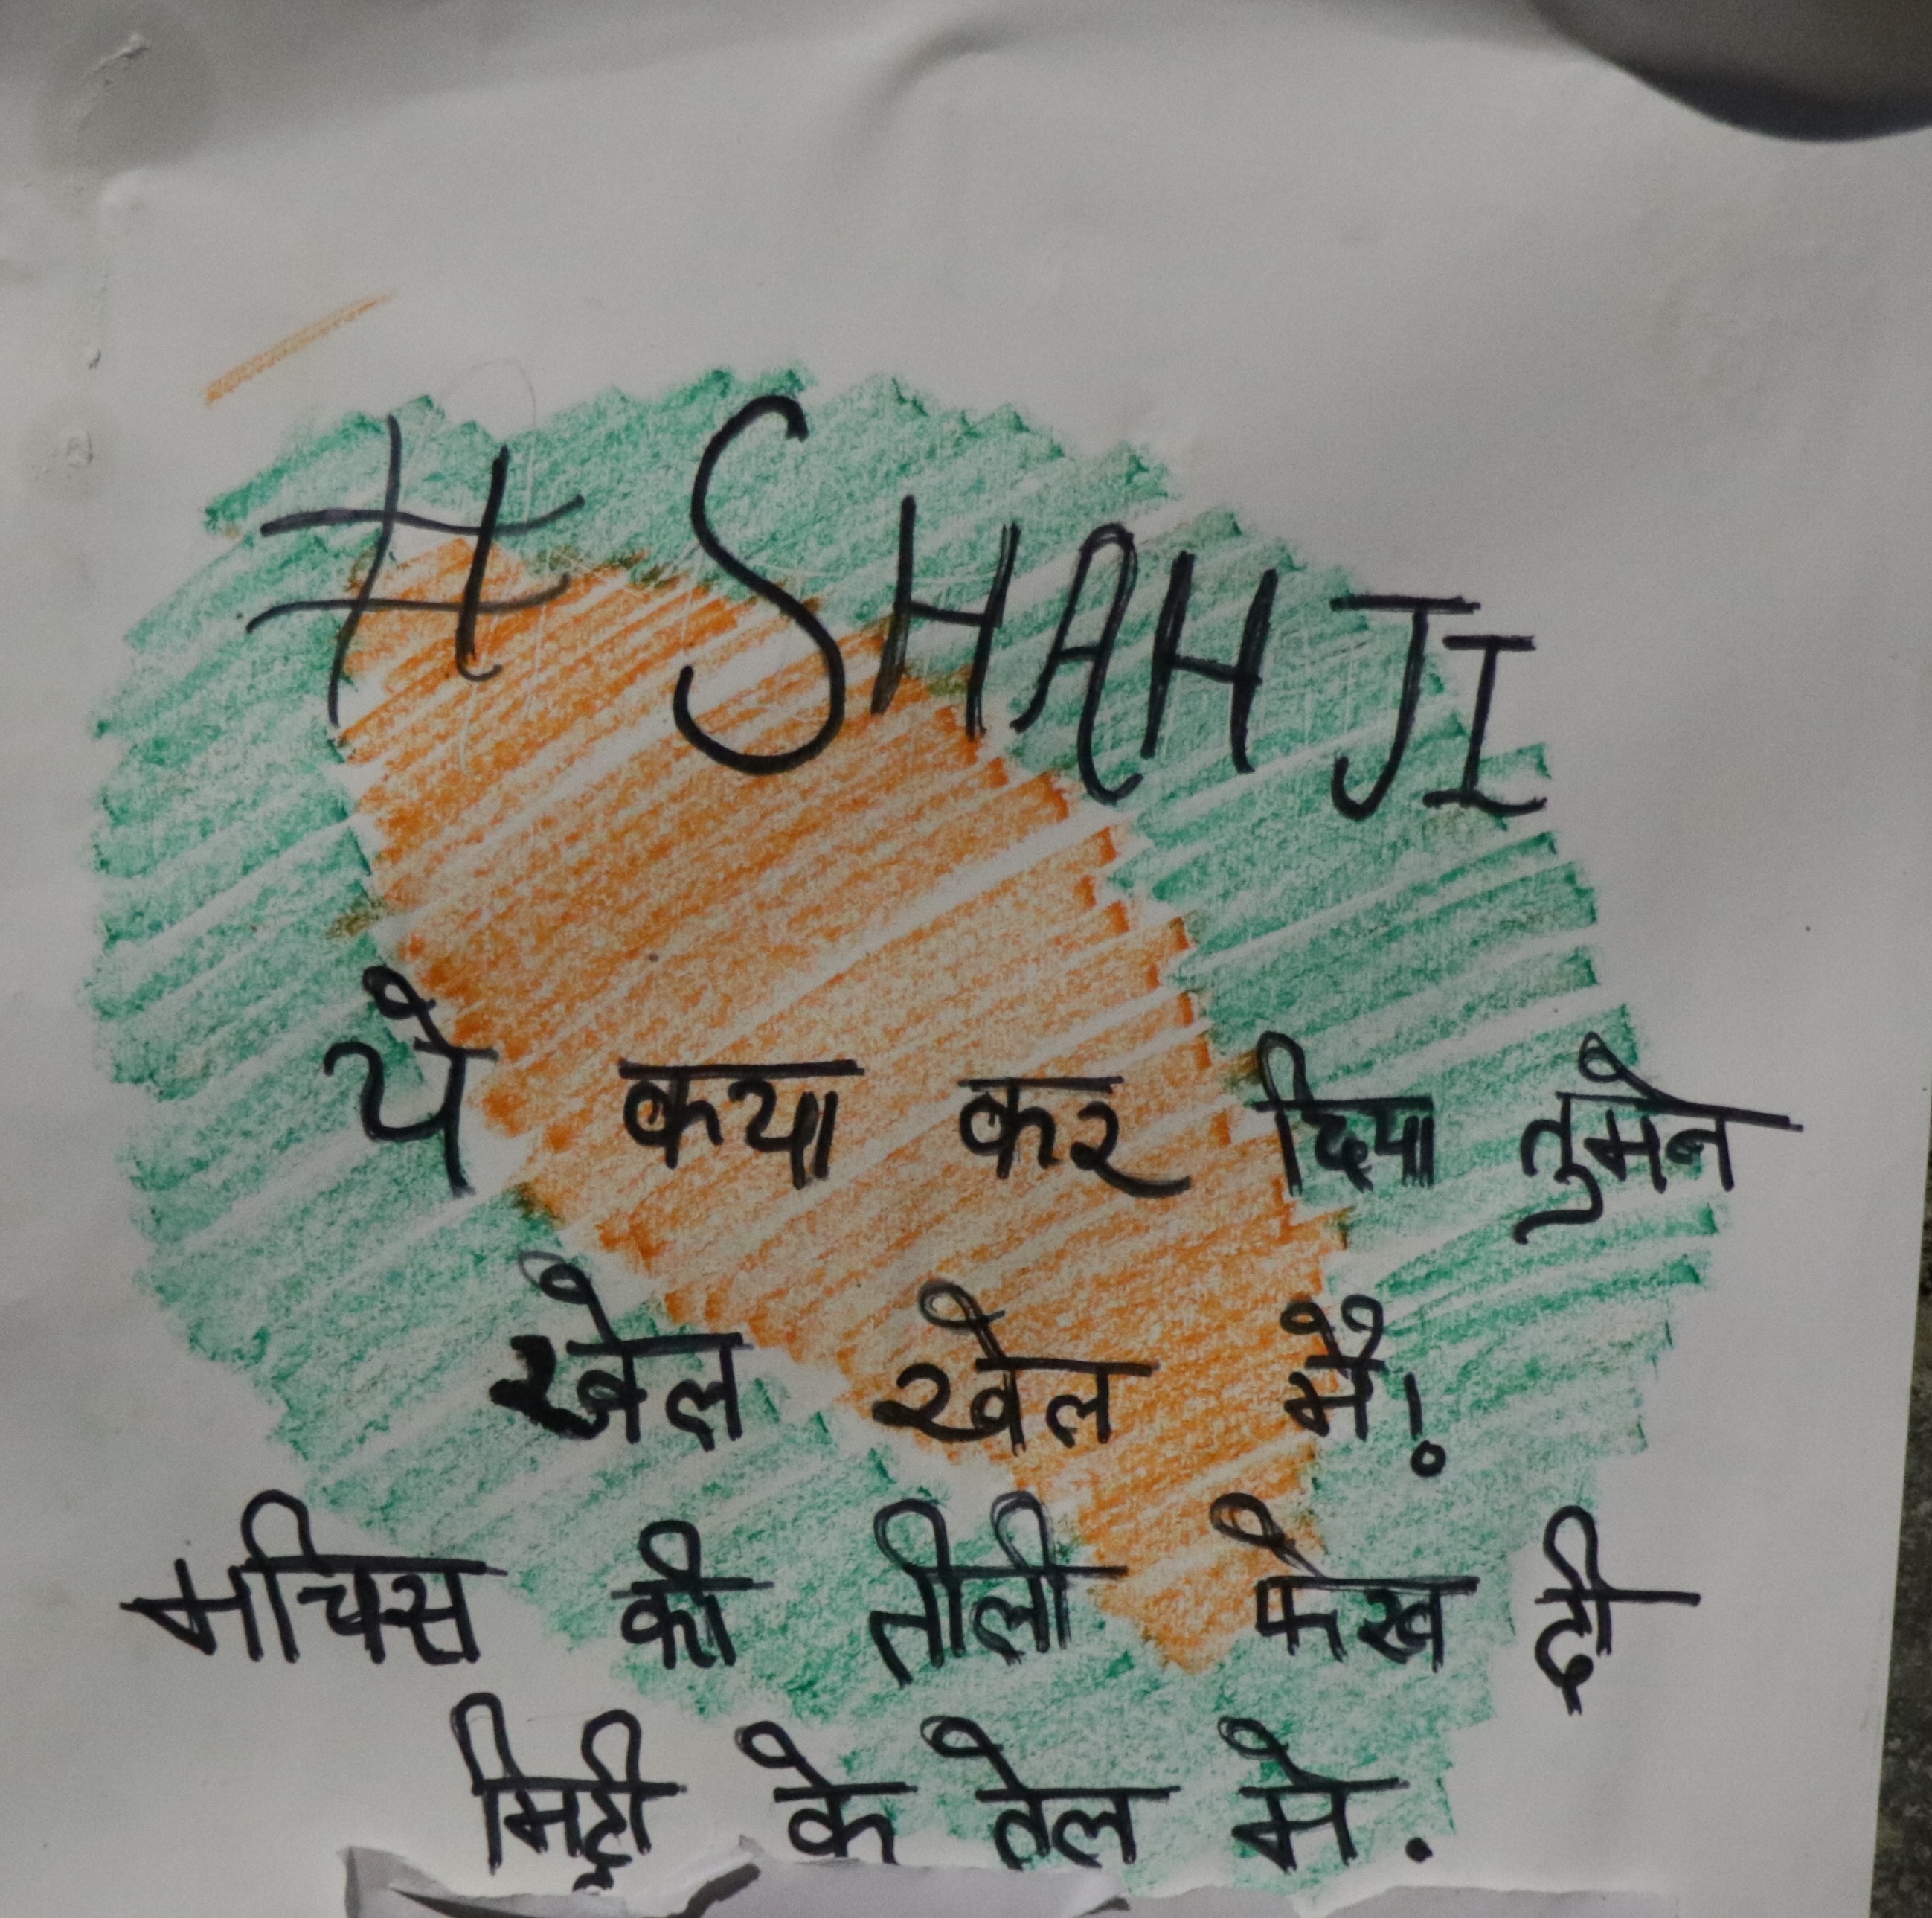 # SHAH JI
ये क्या कर दिया तुमने
खेल खेल मैं!
माचिस की तीली फेख दी
मिट्टी के तेल मे.